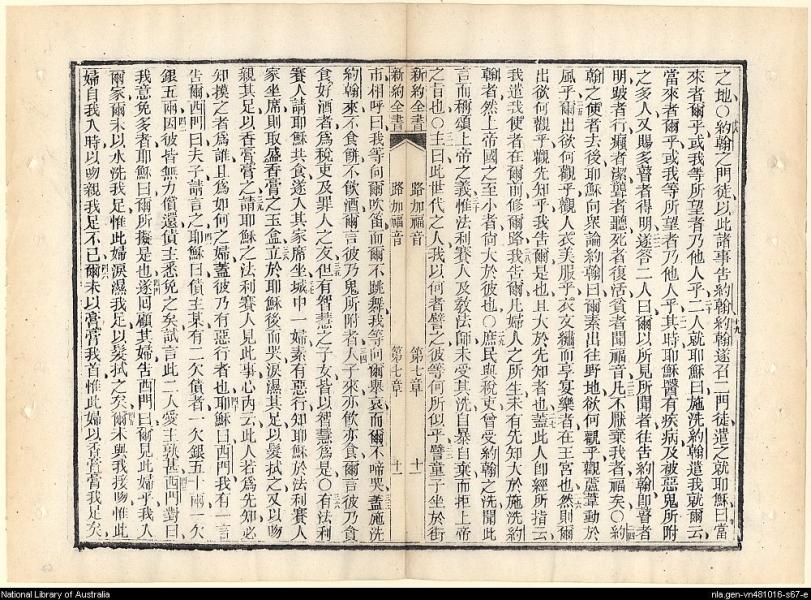 之地○約翰之門徒以此諸事吿約翰約翰遂召二門徒遣之就耶穌曰當
來者爾乎或我等所望者乃他人乎二人就耶穌曰施洗約翰遣我就爾云
當來者爾乎或我等所望者乃他人乎其時耶穌醫有疾病及被惡鬼所附
之多人又賜多瞽者得明遂答二人曰爾以所見所聞者往吿約翰卽瞽者
明跛者行癩者潔聾者聽死者復活貧者聞福音凡不厭棄我者福矣○約
翰之使者去後耶穌向衆論約翰曰爾素出往野地欲何觀乎觀蘆葦動於
風乎爾出欲何觀乎觀人衣美服乎衣文繡而享宴樂者在王宮也然則爾
出欲何觀乎觀先知乎我吿爾是也且大於先知者也蓋此人卽經所指云
我遣我使者在爾前修爾路我吿爾凡婦人之所生未有先知大於施洗約
翰者然上帝國之至小者尙大於彼也○庶民與稅吏曾受約翰之洗聞此
言而稱頌上帝之義惟法利賽人及敎法師未受其洗自暴自棄而拒上帝
之旨也○主曰此世代之人我以何者譬之彼等何所似乎譬童子坐於街
新約全書 路加福音 第七章 十一
新約全書 路加福音 第七章 十一
市相呼曰我等向爾吹笛而爾不跳舞我等向爾舉哀而爾不啼哭蓋施洗
約翰來不食餅不飲酒爾言彼乃鬼所附者人子來亦飲亦食爾言彼乃貪
食好酒者爲稅吏及罪人之友但有智慧之子女皆以智慧爲是○有法利
賽人請耶穌共食遂入其家席坐城中一婦素有惡行知耶穌於法利賽人
家坐席則取盛香膏之玉盒立於耶穌後而哭淚濕其足以髮拭之又以吻
親其足以香膏膏之請耶穌之法利賽人見此事心內云此人若爲先知必
知摸之者爲誰且爲如何之婦蓋彼乃有惡行者也耶穌曰西門我有一言
吿爾西門曰夫子請言之耶穌曰債主某有二欠債者一欠銀五十兩一欠
銀五兩因彼皆無力償還債主悉免之矣試言此二人愛主孰甚西門對曰
我意免多者耶穌曰爾所擬是也遂囘顧其婦吿西門曰爾見此婦乎我入
爾家爾未以水洗我足惟此婦淚濕我足以髮拭之矣爾未與我接吻惟此
婦自我入時以吻親我足不已爾未以膏膏我首惟此婦以香膏膏我足矣
National Library of Australia
nla.gen-vn481016-s67-e